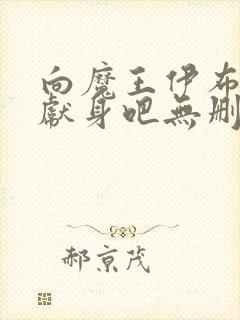 向魔王伊布
獻身吧無刪
郝京茂